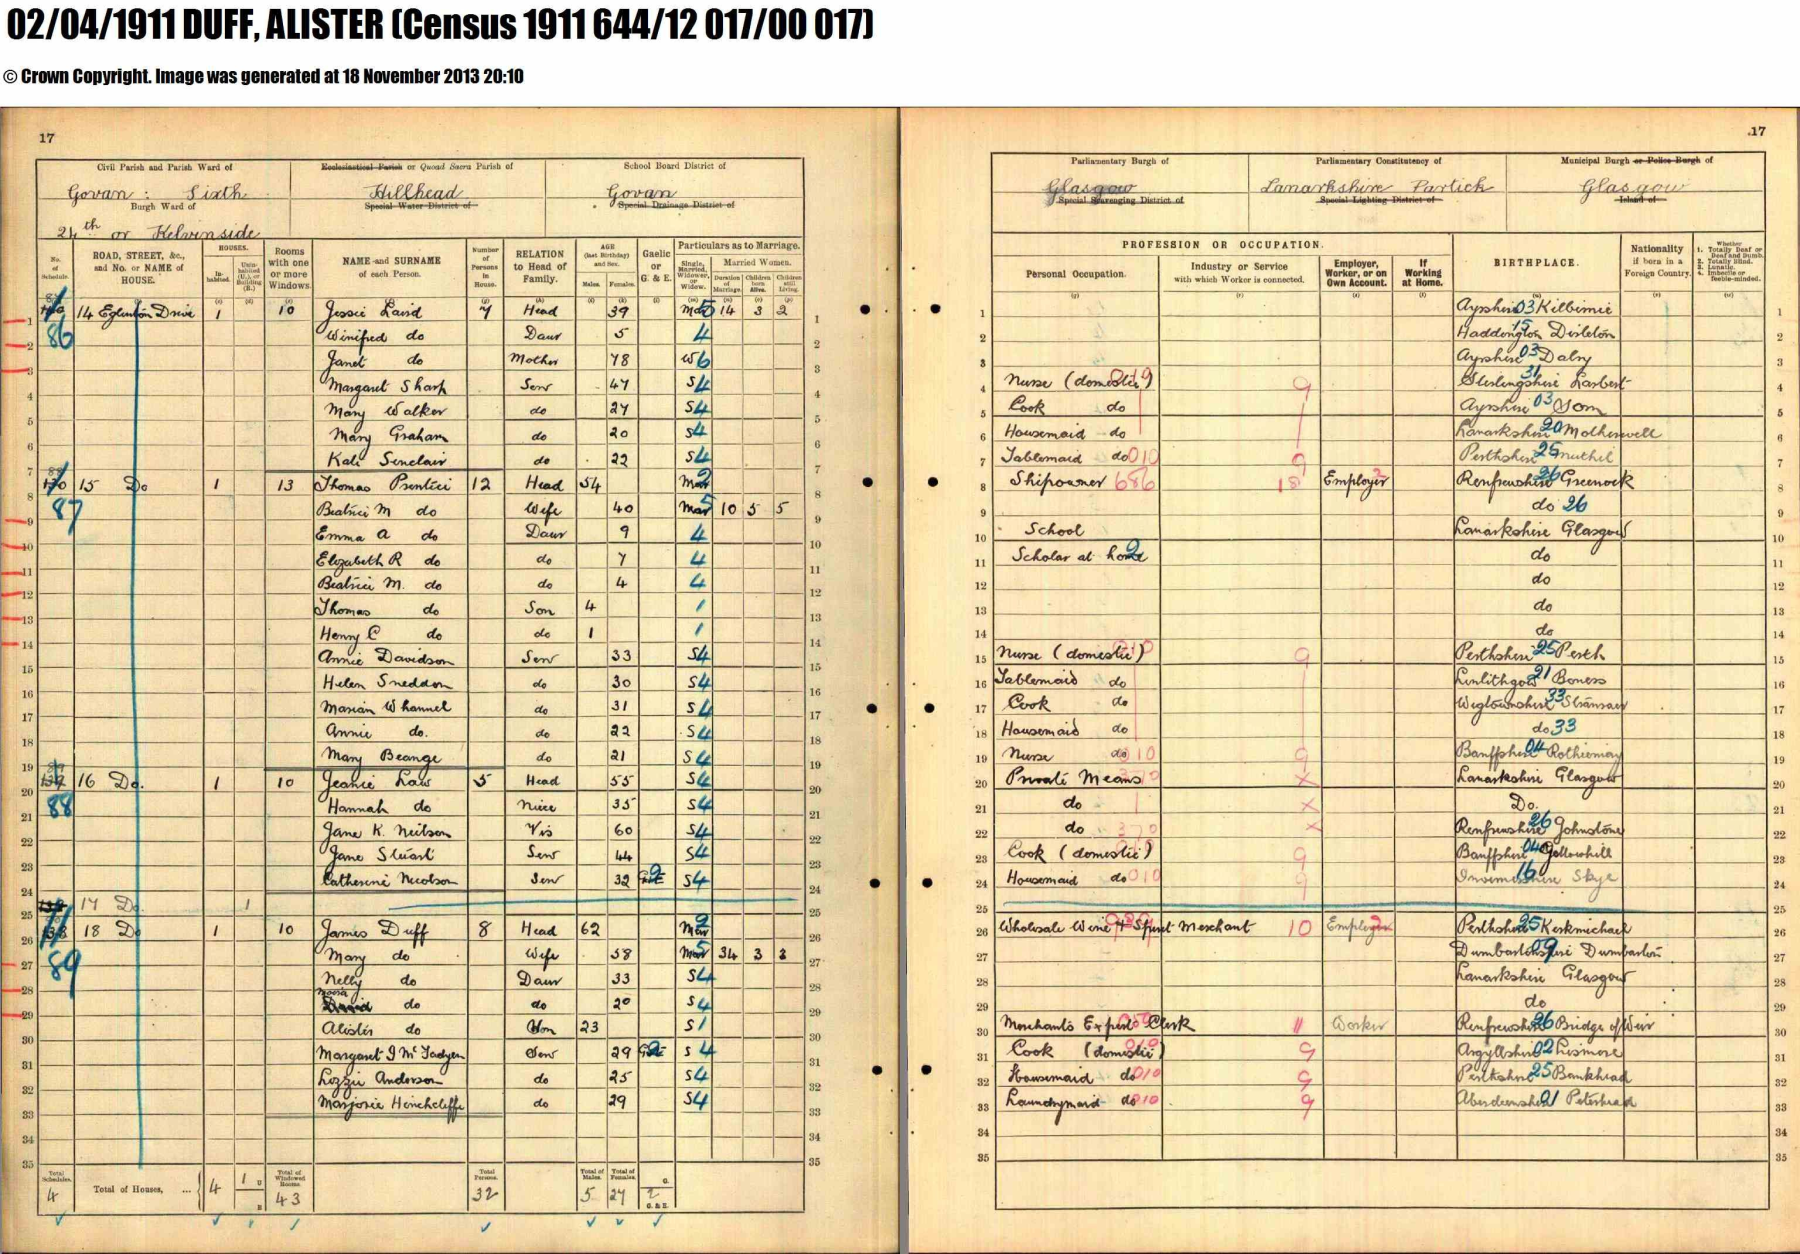 02/04/1911 DUFF, ALISTER (Census 1911 644/12 017/00 017)
© Crown Copyright. Image was generated at 18 November 2013 20:10
17
Civil Parish and Parish Ward of
Govan: Sixth
Burgh Ward of
24th or Kelvinside
Ecclesiastical Parish or Quoad Sacra Parish of
Hillhead
Special Water District of
School Board District of
Govan
Special Drainage District of
No. of Schedule. ROAD, STREET, &c., and No. or NAME of HOUSE. HOUSES. Inhabited. Rooms with one or more Windows. NAME and SURNAME of each Person. Number of Persons in House. RELATION to Head of Family. AGE (last Birthday) and Sex. Males. Females. Gaelic or G. & E. Particulars as to Marriage. Single, Married, Widower, or Widow. Married Women. Duration of Marriage. Children born Alive. Children still Living.
1 86 14 Eglinton Drive 1 10 Jessie Laird 7 Head 39 Mar 5 14 3 2 1
2 Winifred do Daur 5 4 2
3 Janet do Mother 78 W 6 3
4 Margaret Sharp Serv 47 S 4 4
5 Mary Walker do 27 S 4 5
6 Mary Graham do 20 S 4 6
7 Kate Sinclair do 22 S 4 7
8 87 15 Do 1 13 Thomas Prentice 12 Head 54 Mar 2 8
9 Beatrice M do Wife 40 Mar 5 10 5 5 9
10 Emma A do Daur 9 4 10
11 Elizabeth R do do 7 4 11
12 Beatrice M. do do 4 4 12
13 Thomas do Son 4 1 13
14 Henry C do do 1 1 14
15 Annie Davidson Serv 33 S 4 15
16 Helen Sneddon do 30 S 4 16
17 Marian Whannel do 31 S 4 17
18 Annie do. do 22 S 4 18
19 Mary Beange do 21 S 4 19
20 88 16 Do. 1 10 Jeanie Law 5 Head 55 S 4 20
21 Hannah do Niece 35 S 4 21
22 Jane K. Neilson Vis 60 S 4 22
23 Jane Stuart Serv 44 S 4 23
24 Catherine Nicolson Serv 32 G&E 2 S 4 24
25 17 Do. 1 25
26 89 18 Do 1 10 James Duff 8 Head 62 Mar 2 26
27 Mary do Wife 58 Mar 5 34 3 3 27
28 Nelly do Daur 33 S 4 28
29 Moira do do 20 S 4 29
30 Alister do Son 23 S 1 30
31 Margaret J McFadyen Serv 29 G&E 2 S 4 31
32 Lizzie Anderson do 25 S 4 32
33 Marjorie Hinchcliffe do 29 S 4 33
34 34
35 35
Total Schedules. 4 Total of Houses, ... 4 1 U B Total of Windowed Rooms. 43 Total Persons. 32 Total of Males. 5 Total of Females. 27 G. 2 G. & E.
17
Parliamentary Burgh of
Glasgow
Special Scavenging District of
Parliamentary Constituency of
Lanarkshire Partick
Special Lighting District of
Municipal Burgh or Police Burgh of
Glasgow
Island of
PROFESSION OR OCCUPATION.
Personal Occupation. Industry or Service with which Worker is connected. Employer, Worker, or on Own Account. If Working at Home. BIRTHPLACE. Nationality if born in a Foreign Country. Whether 1. Totally Deaf or Deaf and Dumb. 2. Totally Blind. 3. Lunatic. 4. Imbecile or feeble-minded.
1 Ayrshire 03 Kilbirnie 1
2 Haddington 15 Dirleton 2
3 Ayrshire 03 Dalry 3
4 Nurse (domestic) 9 Stirlingshire 31 Larbert 4
5 Cook do Ayrshire 03 Sorn 5
6 Housemaid do Lanarkshire 20 Motherwell 6
7 Tablemaid do 010 9 Perthshire 25 Muthil 7
8 Shipowner 686 18 Employer 2 Renfrewshire 26 Greenock 8
9 do 26 9
10 School Lanarkshire Glasgow 10
11 Scholar at home do 11
12 do 12
13 do 13
14 do 14
15 Nurse (domestic) 9 Perthshire 25 Perth 15
16 Tablemaid do Linlithgow 21 Boness 16
17 Cook do Wigtownshire 33 Stranraer 17
18 Housemaid do do 33 18
19 Nurse do 010 9 Banffshire 04 Rothiemay 19
20 Private Means X Lanarkshire Glasgow 20
21 do X Do. 21
22 do X Renfrewshire 26 Johnstone 22
23 Cook (domestic) 9 Banffshire 04 Gollowhill 23
24 Housemaid do 010 9 Invernesshire 16 Skye 24
25 25
26 Wholesale Wine & Spirit Merchant 10 Employer 2 Perthshire 25 Kerkmichael 26
27 Dumbartonshire 09 Dumbarton 27
28 Lanarkshire Glasgow 28
29 do 29
30 Merchant's Export Clerk 11 Worker Renfrewshire 26 Bridge of Weir 30
31 Cook (domestic) 9 Argyllshire 02 Lismore 31
32 Housemaid do 010 9 Perthshire 25 Bankhead 32
33 Laundrymaid do 010 9 Aberdeenshire 01 Peterhead 33
34 34
35 35